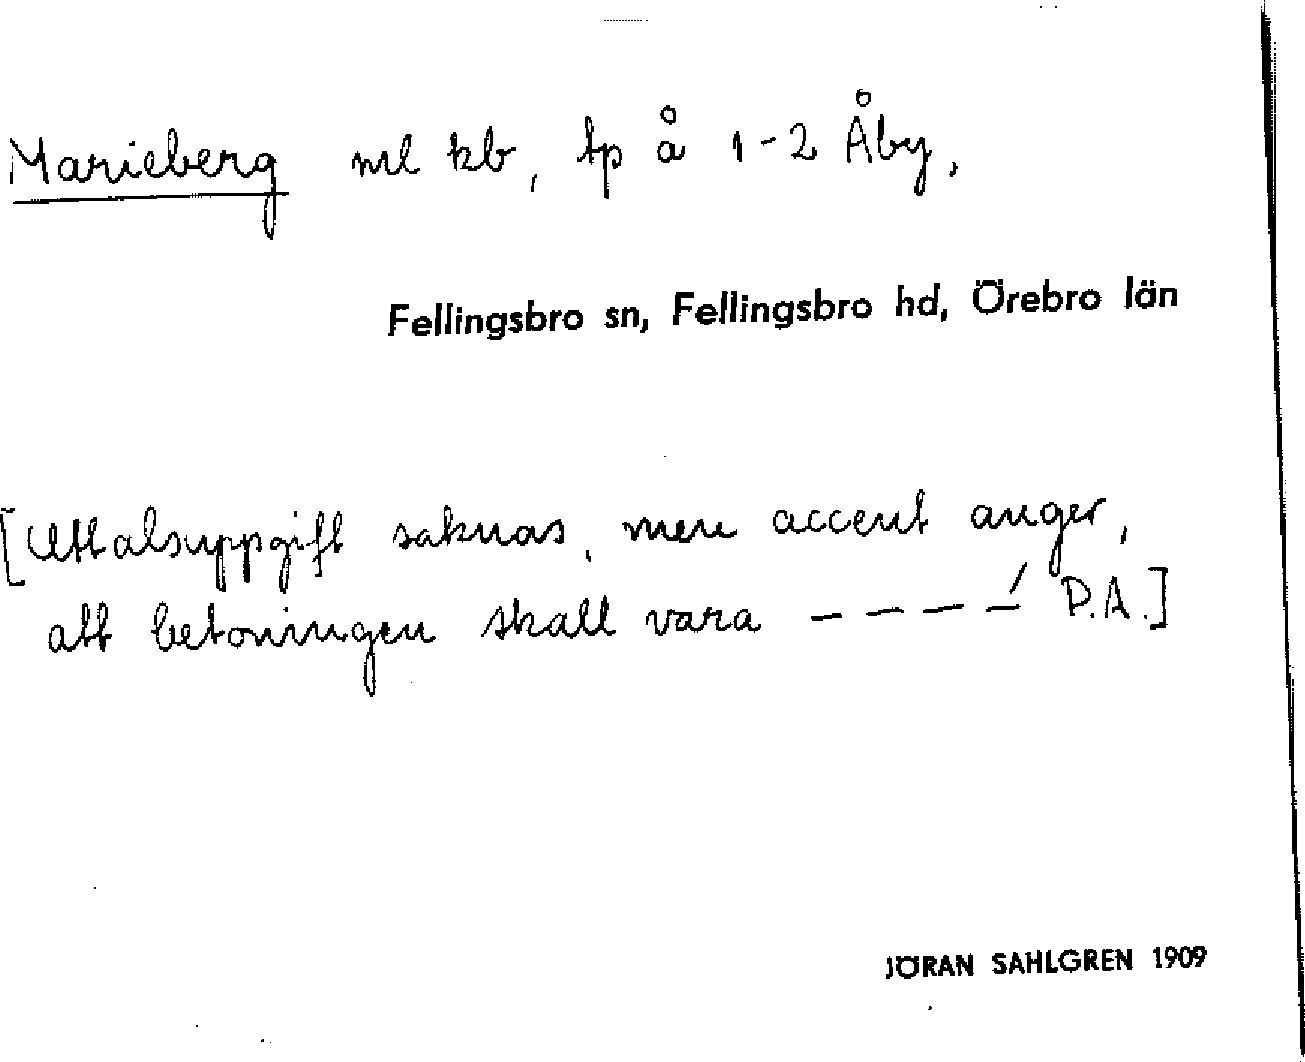 Marieberg ml kb, tp å 1-2 Åby,
Fellingsbro sn, Fellingsbro hd, Örebro län
[Uttalsuppgift saknas, men accent anger,
att betoningen skall vara – – – –́ P.A.]
JÖRAN SAHLGREN 1909